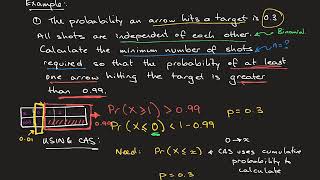 Example:
① The probability an arrow hits a target is 0.3
All shots are independent of each other. Binomial
Calculate the minimum number of shots n=?
required so that the probability of at least
one arrow hitting the target is greater
than 0.99.
Pr(X≥1) > 0.99
0.99
p=0.3
0.01
Pr(X≤0) < 1-0.99
USING CAS:
Need: Pr(X≤x) CAS uses cumulative
0→x
probability to
calculate
p=0.3